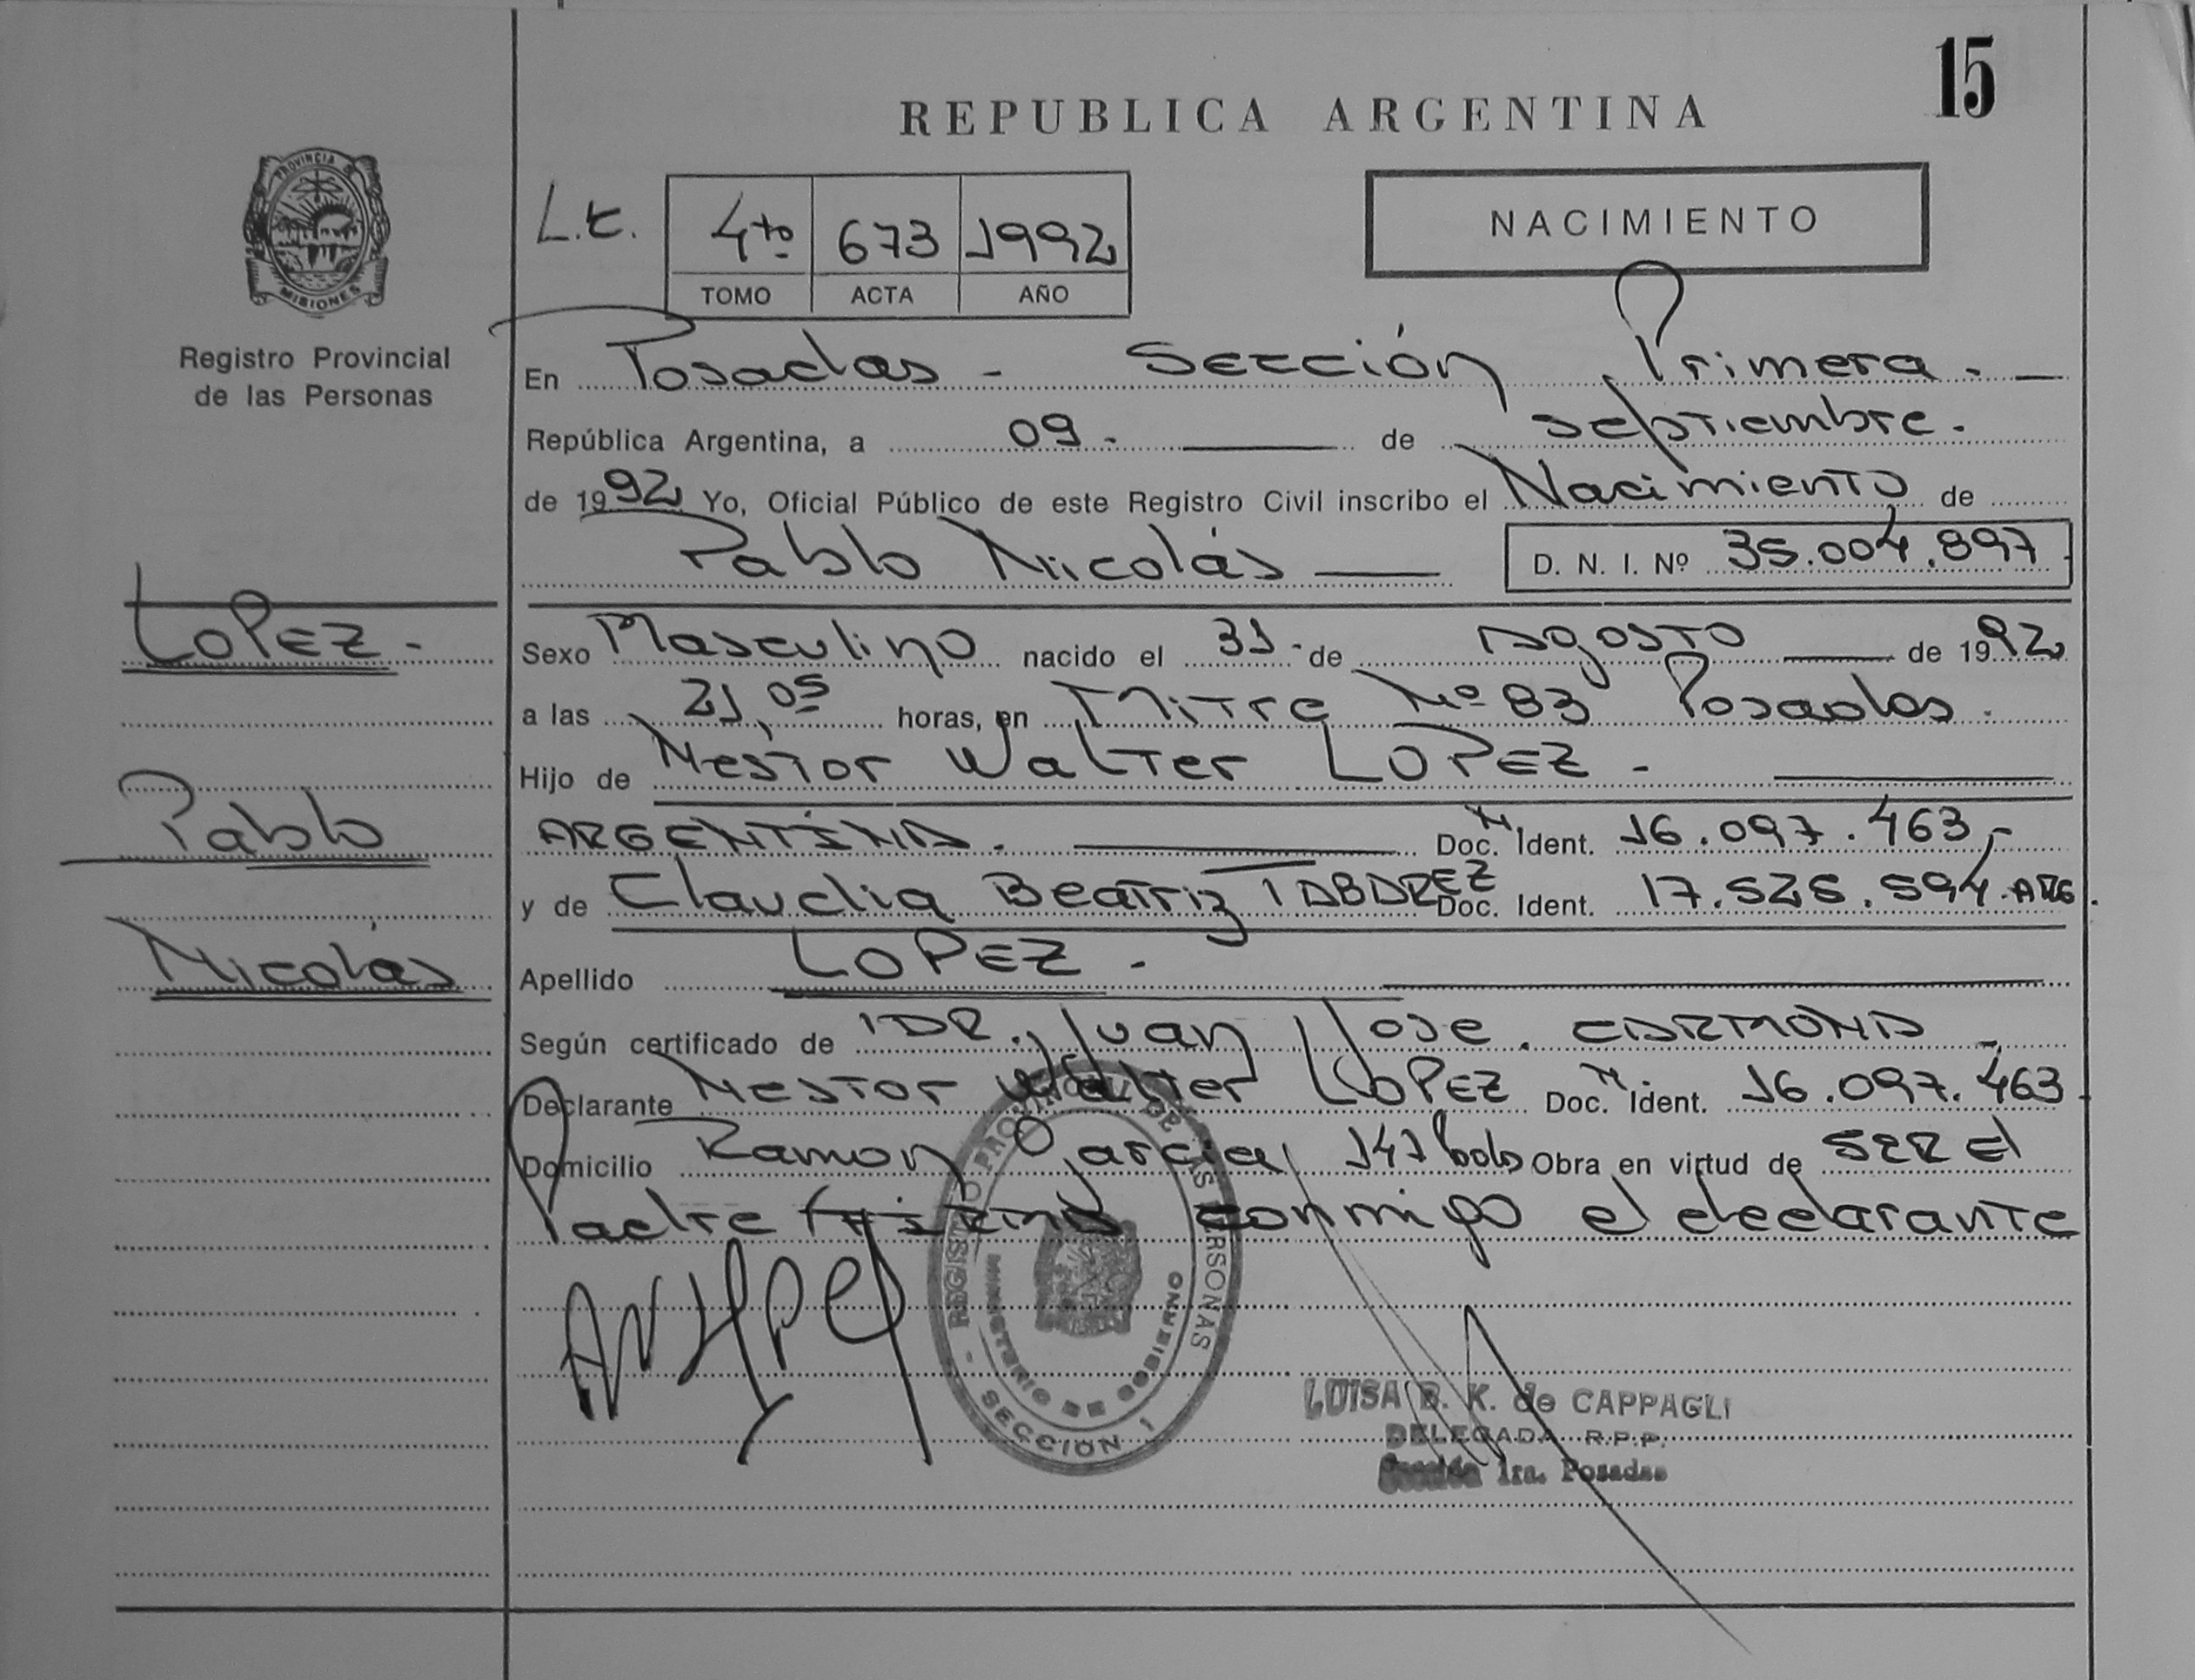 15
REPUBLICA ARGENTINA
PROVINCIA DE
MISIONES
Registro Provincial
de las Personas
L.t. 4to 673 1992
TOMO ACTA AÑO
NACIMIENTO
En Posadas - Sección Primera. —
República Argentina, a 09. — de septiembre.
de 1992 Yo, Oficial Público de este Registro Civil inscribo el Nacimiento de
Pablo Nicolás — D. N. I. Nº 35.004.897
LOPEZ.-
Sexo Masculino nacido el 31 - de Agosto — de 1992
a las 21,05 horas, en Mitre Nº 83 Posadas.
Hijo de Nestor Walter LOPEZ - —
Pablo
ARGENTINA. — Doc. N Ident. 16.097.463,-
y de Claudia Beatriz TABAREZ Doc. Ident. 17.525.594 ARG.
Nicolás
Apellido LOPEZ. - —
Según certificado de DR. Juan Jose. CARMONA -
Declarante Nestor Walter LOPEZ Doc. N Ident. 16.097.463
Domicilio Ramon Garcia 147 Obra en virtud de SER el
Padre FIRMA conmigo el declarante
REGISTRO PROVINCIAL DE LAS PERSONAS - SECCIÓN 1
MINISTERIO DE GOBIERNO
LUISA B. K. de CAPPAGLI
DELEGADA R.P.P.
Sección 1ra. Posadas